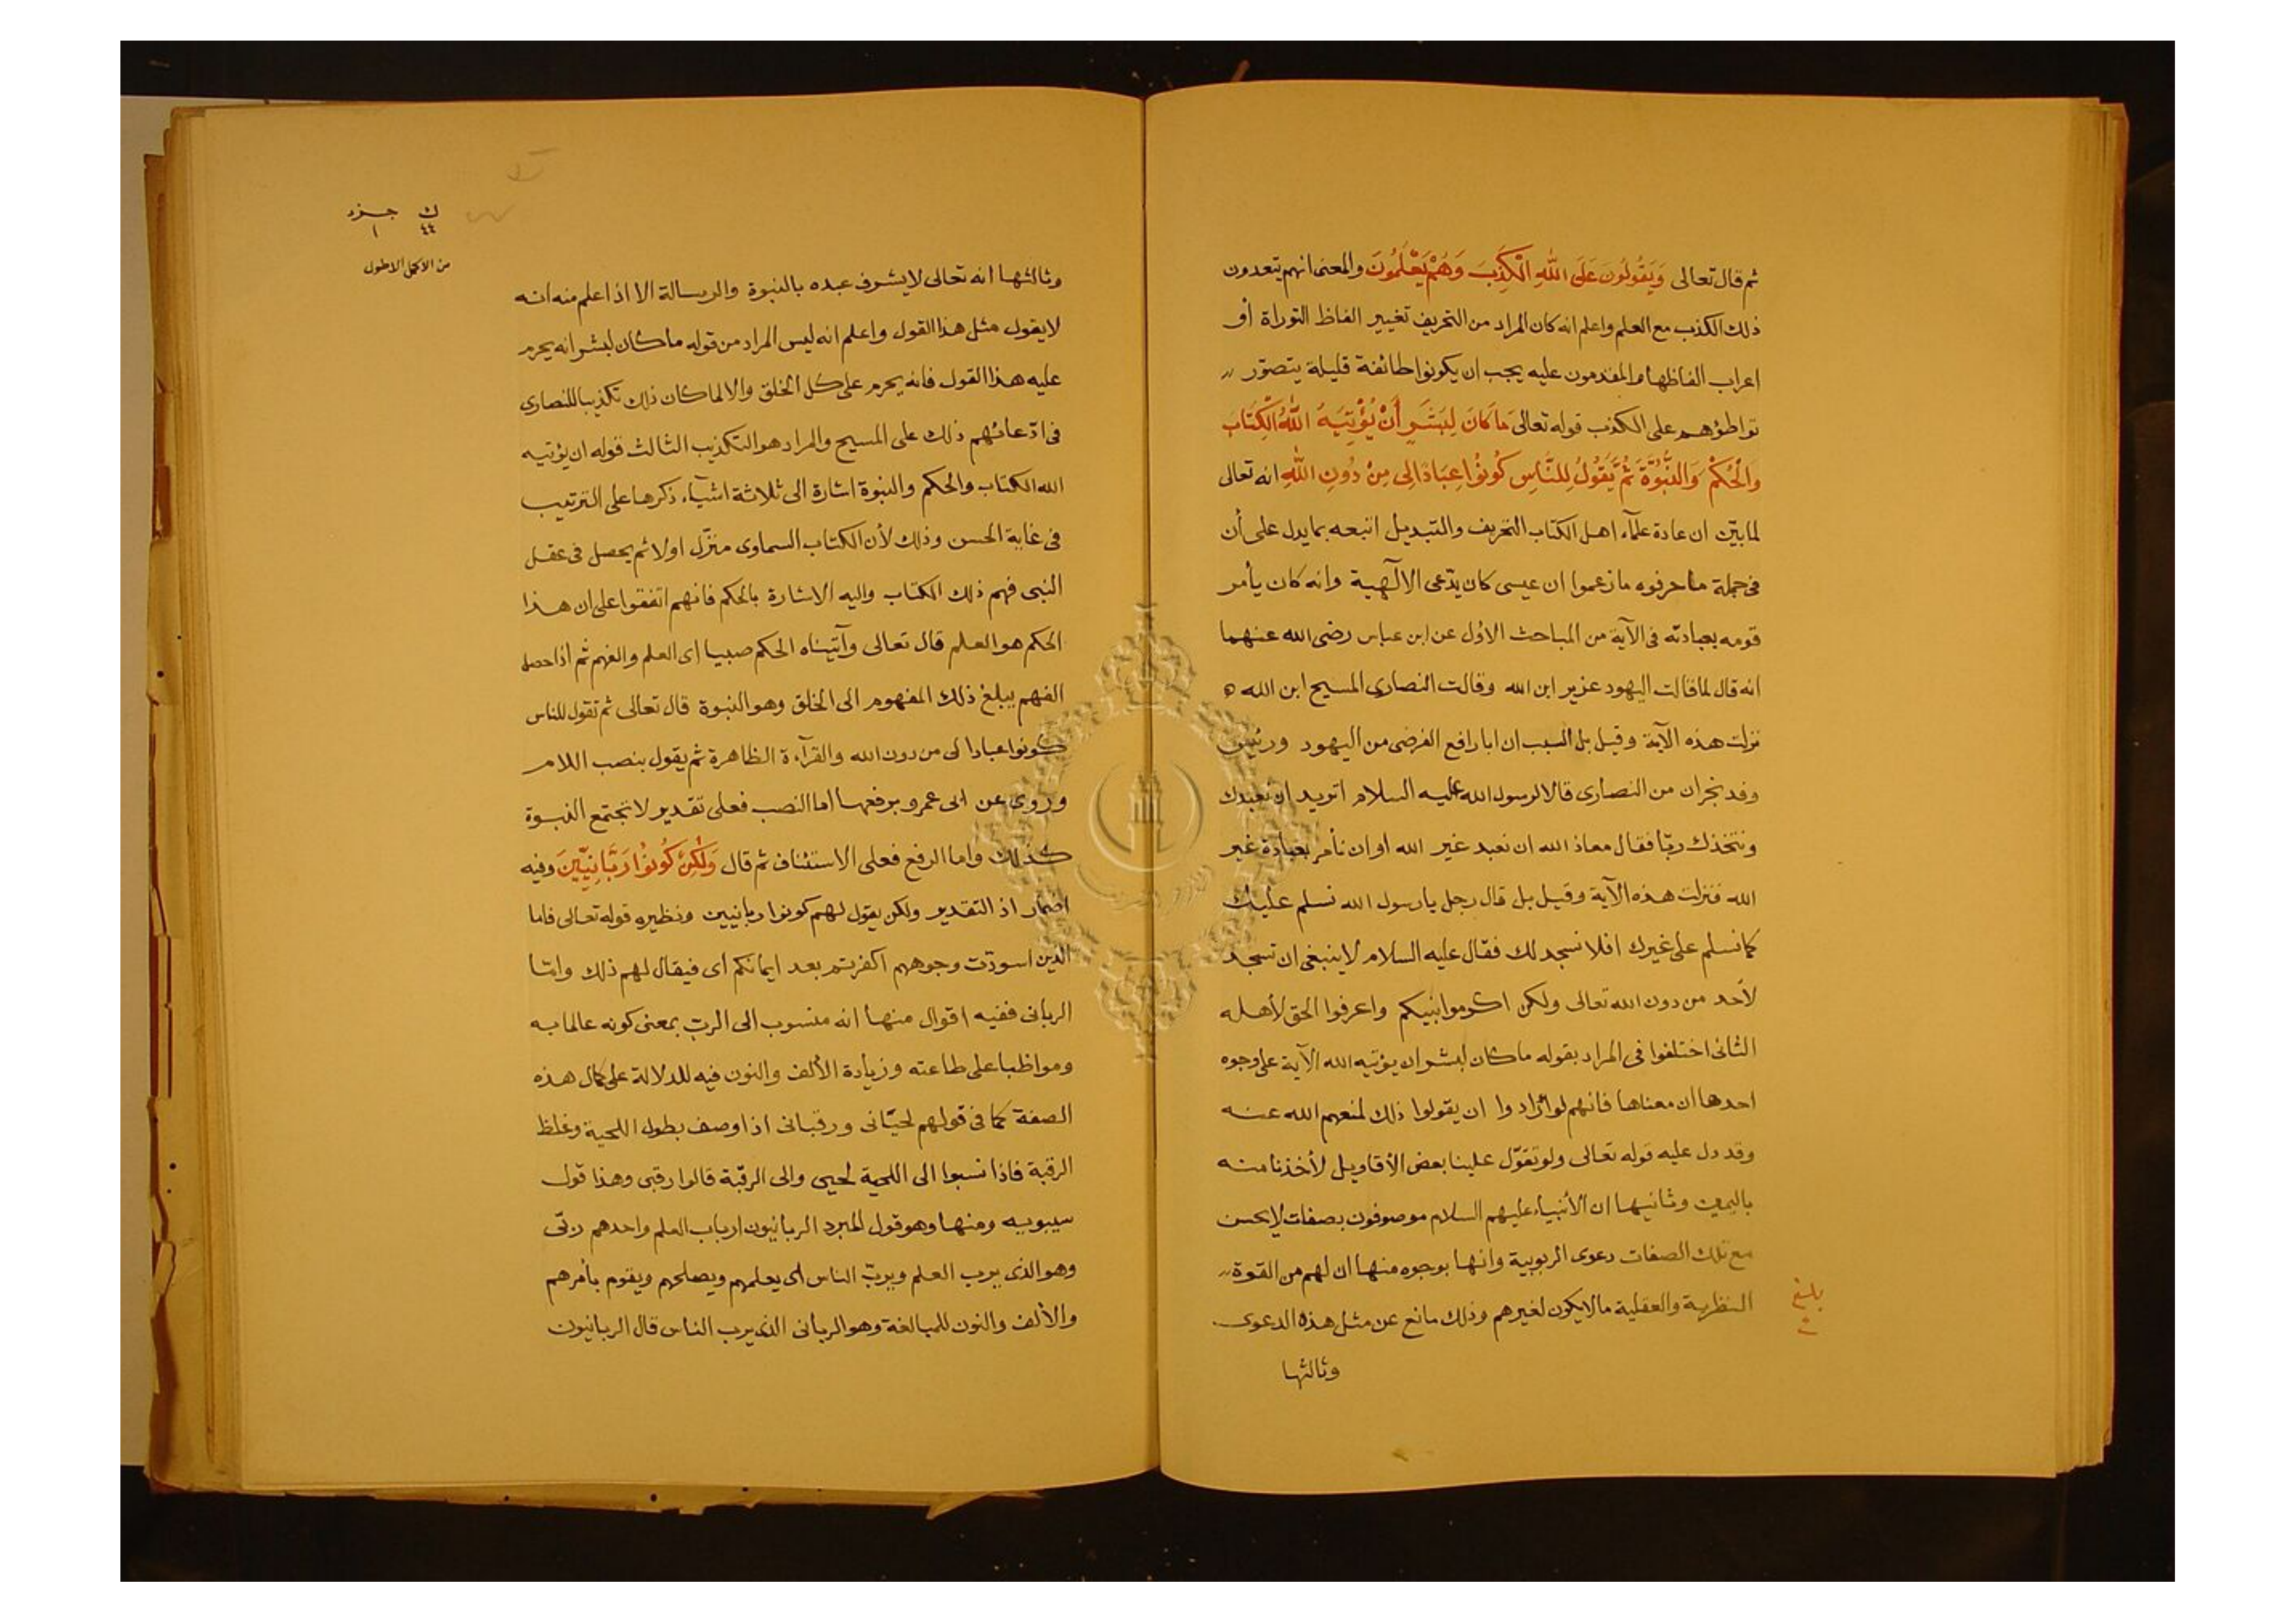 ثم قال تعالى وَيَقُولُونَ عَلَى اللّٰهِ الْكَذِبَ وَهُمْ يَعْلَمُونَ والمعنى انهم يتعدون
ذلك الكذب مع العلم واعلم انه كان المراد من التحريف تغيير الفاظ التوراة أو
اعراب الفاظها فالمقدمون عليه يجب ان يكونوا طائفة قليلة يتصوّر
تواطؤهم على الكذب قوله تعالى مَا كَانَ لِبَشَرٍ أَنْ يُؤْتِيَهُ اللّٰهُ الْكِتَابَ
وَالْحُكْمَ وَالنُّبُوَّةَ ثُمَّ يَقُولُ لِلنَّاسِ كُونُوا عِبَادًا لِى مِنْ دُونِ اللّٰهِ انه تعالى
لما بيّن ان عادة علمآء اهل الكتاب التحريف والتبديل اتبعه بما يدل على أن
فى جملة ما حرفوه ما زعموا ان عيسى كان يدّعى الالٓهية وانه كان يأمر
قومه بعبادته فى الآية من المباحث الاول عن ابن عباس رضى الله عنهما
انه قال لما قالت اليهود عزير ابن الله وقالت النصارى المسيح ابن الله
نزلت هذه الآية وقيل بل السبب ان ابا رافع القرضى من اليهود ورئيس
وفد نجران من النصارى قالا لرسول الله عليه السلام اتريد ان نعبدك
ونتخذك ربّا فقال معاذ الله ان نعبد غير الله او ان نأمر بعبادة غير
الله فنزلت هذه الآية وقيل بل قال رجل يا رسول الله نسلم عليك
كما نسلم على غيرك افلا نسجد لك فقال عليه السلام لا ينبغى ان تسجد
لأحد من دون الله تعالى ولكن اكرموا نبيكم واعرفوا الحق لأهله
الثانى اختلفوا فى المراد بقوله ما كان لبشر ان يؤتيه الله الآية على وجوه
احدها ان معناها فانهم لو ارادوا ان يقولوا ذلك لمنعهم الله عنه
وقد دل عليه قوله تعالى ولو تقوّل علينا بعض الأقاويل لأخذنا منه
باليمين وثانيها ان الأنبياء عليهم السلام موصوفون بصفات لا يحسن
مع تلك الصفات دعوى الربوبية وانها بوجوه منها ان لهم من القوة
النظرية والعقلية ما لا يكون لغيرهم وذلك مانع عن مثل هذه الدعوى
بلغ
وثالثها
ك جزء
٤٤ ١
من الاكمل الاطول
وثالثها انه تعالى لا يشرف عبده بالنبوة والرسالة الا اذا علم منه انه
لا يقول مثل هذا القول واعلم انه ليس المراد من قوله ما كان لبشر انه يحرم
عليه هذا القول فانه يحرم على كل الخلق والا لما كان ذلك تكذيبا للنصارى
فى ادّعائهم ذلك على المسيح والمراد هو التكذيب الثالث قوله ان يؤتيه
الله الكتاب والحكم والنبوة اشارة الى ثلاثة اشيآء ذكرها على الترتيب
فى غاية الحسن وذلك لأن الكتاب السماوى منزّل اولا ثم يحصل فى عقل
النبى فهم ذلك الكتاب واليه الاشارة بالحكم فانهم اتفقوا على ان هذا
الحكم هو العلم قال تعالى وآتيناه الحكم صبيا اى العلم والفهم ثم اذا حصل
الفهم يبلغ ذلك المفهوم الى الخلق وهو النبوة قال تعالى ثم تقول للناس
كونوا عبادا لى من دون الله والقرآءة الظاهرة ثم يقول بنصب اللام
وروى عن ابى عمرو برفعها اما النصب فعلى تقدير لا تجتمع النبوة
كذلك واما الرفع فعلى الاستئناف ثم قال وَلٰكِنْ كُونُوا رَبَّانِيِّينَ وفيه
اضمار اذ التقدير ولكن يقول لهم كونوا ربانيين ونظيره قوله تعالى فاما
الذين اسودّت وجوههم اكفرتم بعد ايمانكم اى فيقال لهم ذلك وامّا
الربانى ففيه اقوال منها انه منسوب الى الربّ بمعنى كونه عالما به
ومواظبا على طاعته وزيادة الألف والنون فيه للدلالة على كمال هذه
الصفة كما فى قولهم لحيّانى ورقبانى اذا وصف بطول اللحية وغلظ
الرقبة فاذا نسبوا الى اللحية لحيى والى الرقبة قالوا رقبى وهذا قول
سيبويه ومنها وهو قول المبرد الربانيون ارباب العلم واحدهم ربّى
وهو الذى يرب العلم ويربّ الناس اى يعلمهم ويصلحهم ويقوم بأمرهم
والألف والنون للمبالغة وهو الربانى الذى يرب الناس قال الربانيون